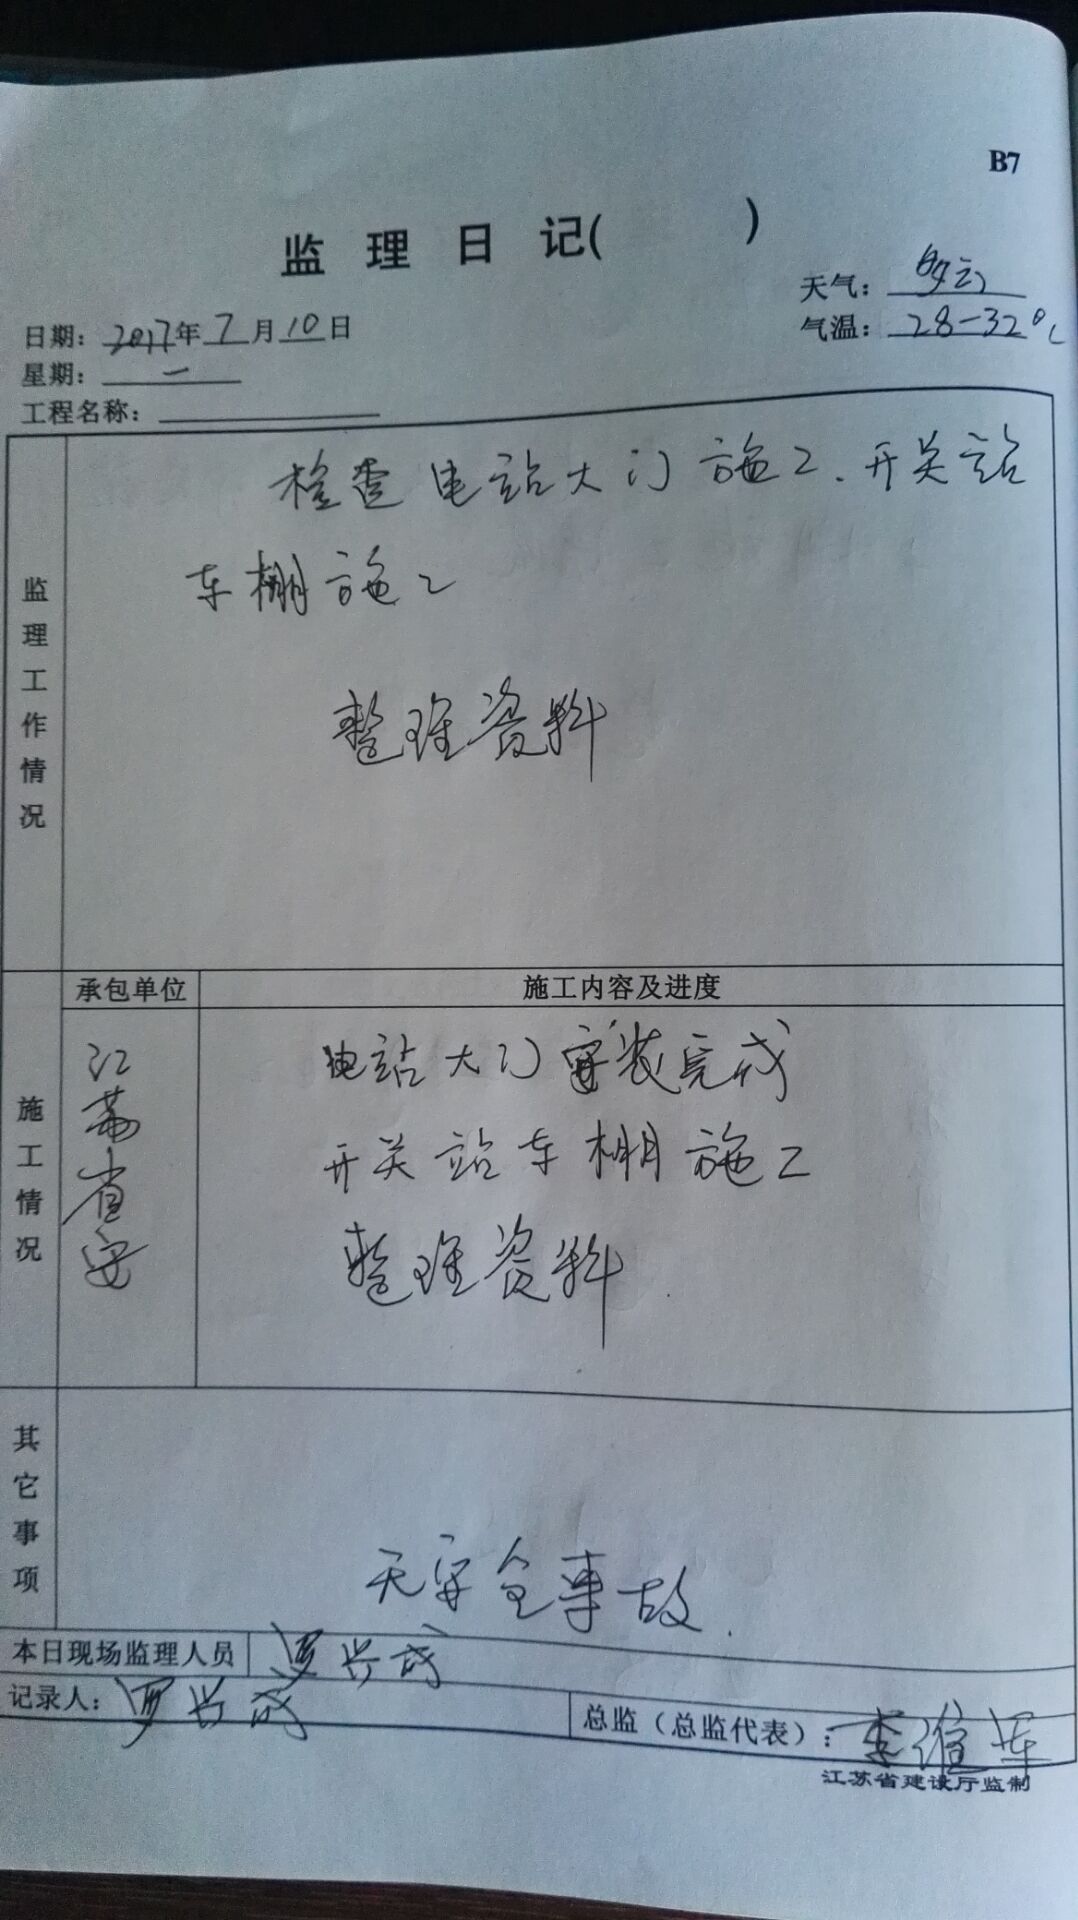 B7
监 理 日 记( )
天气：多云
日期：2017年7月10日
气温：28-32℃
星期：一
工程名称：
监理工作情况
检查电站大门施工.开关站
车棚施工
整理资料
承包单位
施工内容及进度
施工情况
江苏省安
电站大门安装完成
开关站车棚施工
整理资料
其它事项
无安全事故.
本日现场监理人员 罗兴成
记录人：罗兴成
总监（总监代表）：李维军
江苏省建设厅监制